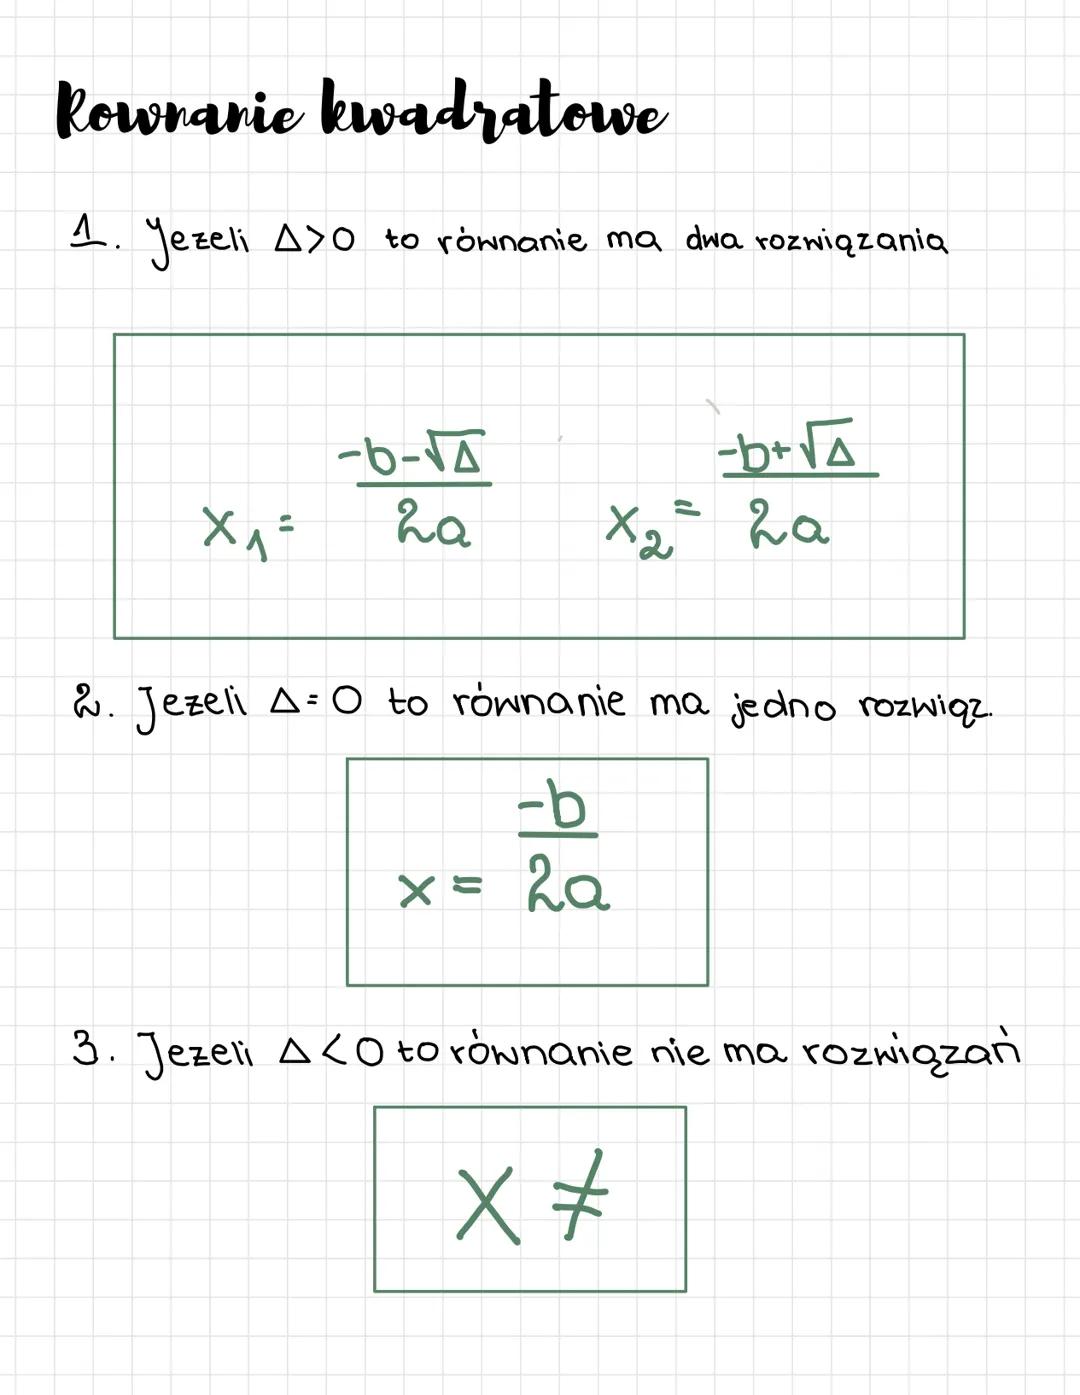 Rownanie kwadratowe
1. Jezeli Δ>0 to równanie ma dwa rozwiązania
x₁ = -b-√Δ / 2a x₂ = -b+√Δ / 2a
2. Jezeli Δ=0 to równanie ma jedno rozwiąz.
x = -b / 2a
3. Jezeli Δ<0 to równanie nie ma rozwiązań
X ≠